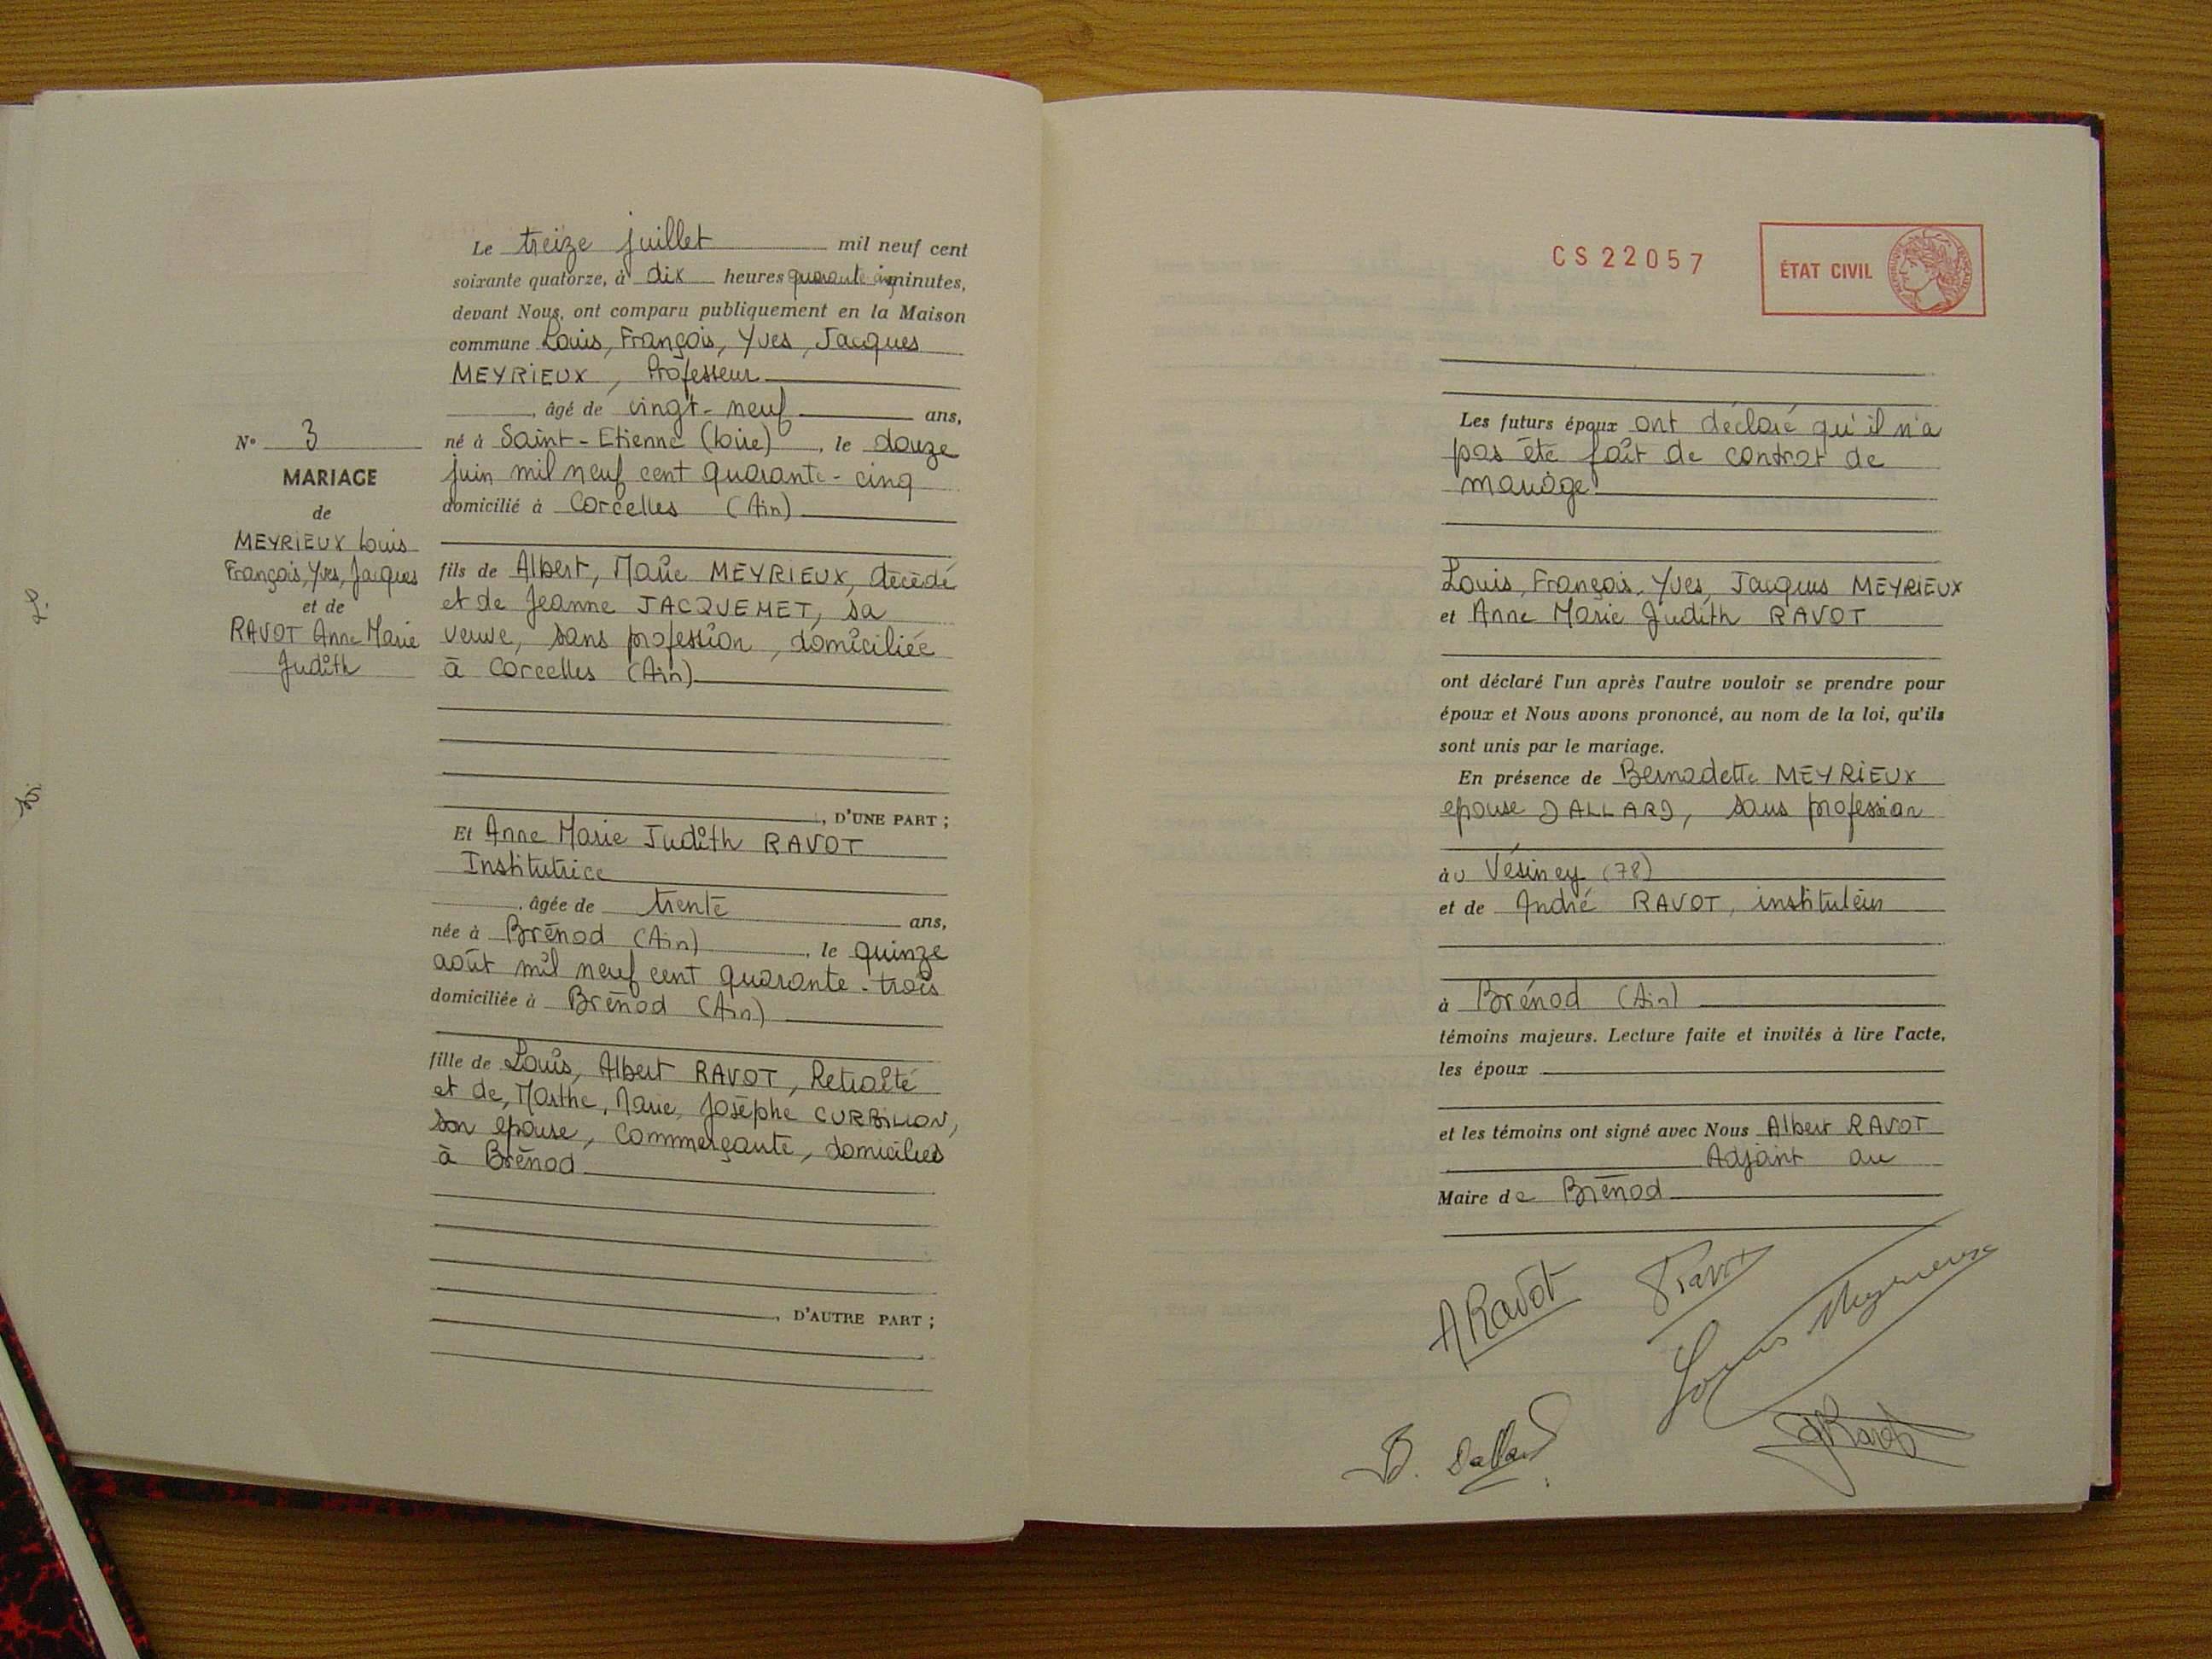 Le treize juillet mil neuf cent
soixante quatorze, à dix heures quarante cinq minutes,
devant Nous, ont comparu publiquement en la Maison
commune Louis, François, Yves, Jacques
MEYRIEUX, Professeur
, âgé de vingt-neuf ans,
né à Saint-Etienne (Loire), le douze
juin mil neuf cent quarante-cinq
domicilié à Corcelles (Ain)
fils de Albert, Marie MEYRIEUX, décédé
et de Jeanne JACQUEMET, sa
veuve, sans profession, domiciliée
à Corcelles (Ain)
, D'UNE PART ;
Et Anne Marie Judith RAVOT
Institutrice
, âgée de trente ans,
née à Brénod (Ain), le quinze
août mil neuf cent quarante-trois
domiciliée à Brénod (Ain)
fille de Louis, Albert RAVOT, Retraité
et de, Marthe, Marie, Josèphe CURBILLON,
son epouse, Commerçante, domiciliés
à Brénod
, D'AUTRE PART ;
N° 3
MARIAGE
de
MEYRIEUX Louis
François, Yves, Jacques
et de
RAVOT Anne Marie
Judith
CS22057
ÉTAT CIVIL
Les futurs époux ont déclaré qu'il n'a
pas été fait de contrat de
mariage.
Louis, François, Yves, Jacques MEYRIEUX
et Anne Marie Judith RAVOT
ont déclaré l'un après l'autre vouloir se prendre pour
époux et Nous avons prononcé, au nom de la loi, qu'ils
sont unis par le mariage.
En présence de Bernadette MEYRIEUX
epouse DALLARD, sans profession
àu Vésiney (78)
et de André RAVOT, instituteur
à Brénod (Ain)
témoins majeurs. Lecture faite et invités à lire l'acte,
les époux
et les témoins ont signé avec Nous Albert RAVOT
Adjoint au
Maire de Brénod
ARavot
Ravot
Louis Meyrieux
B. Dallard
Ravot